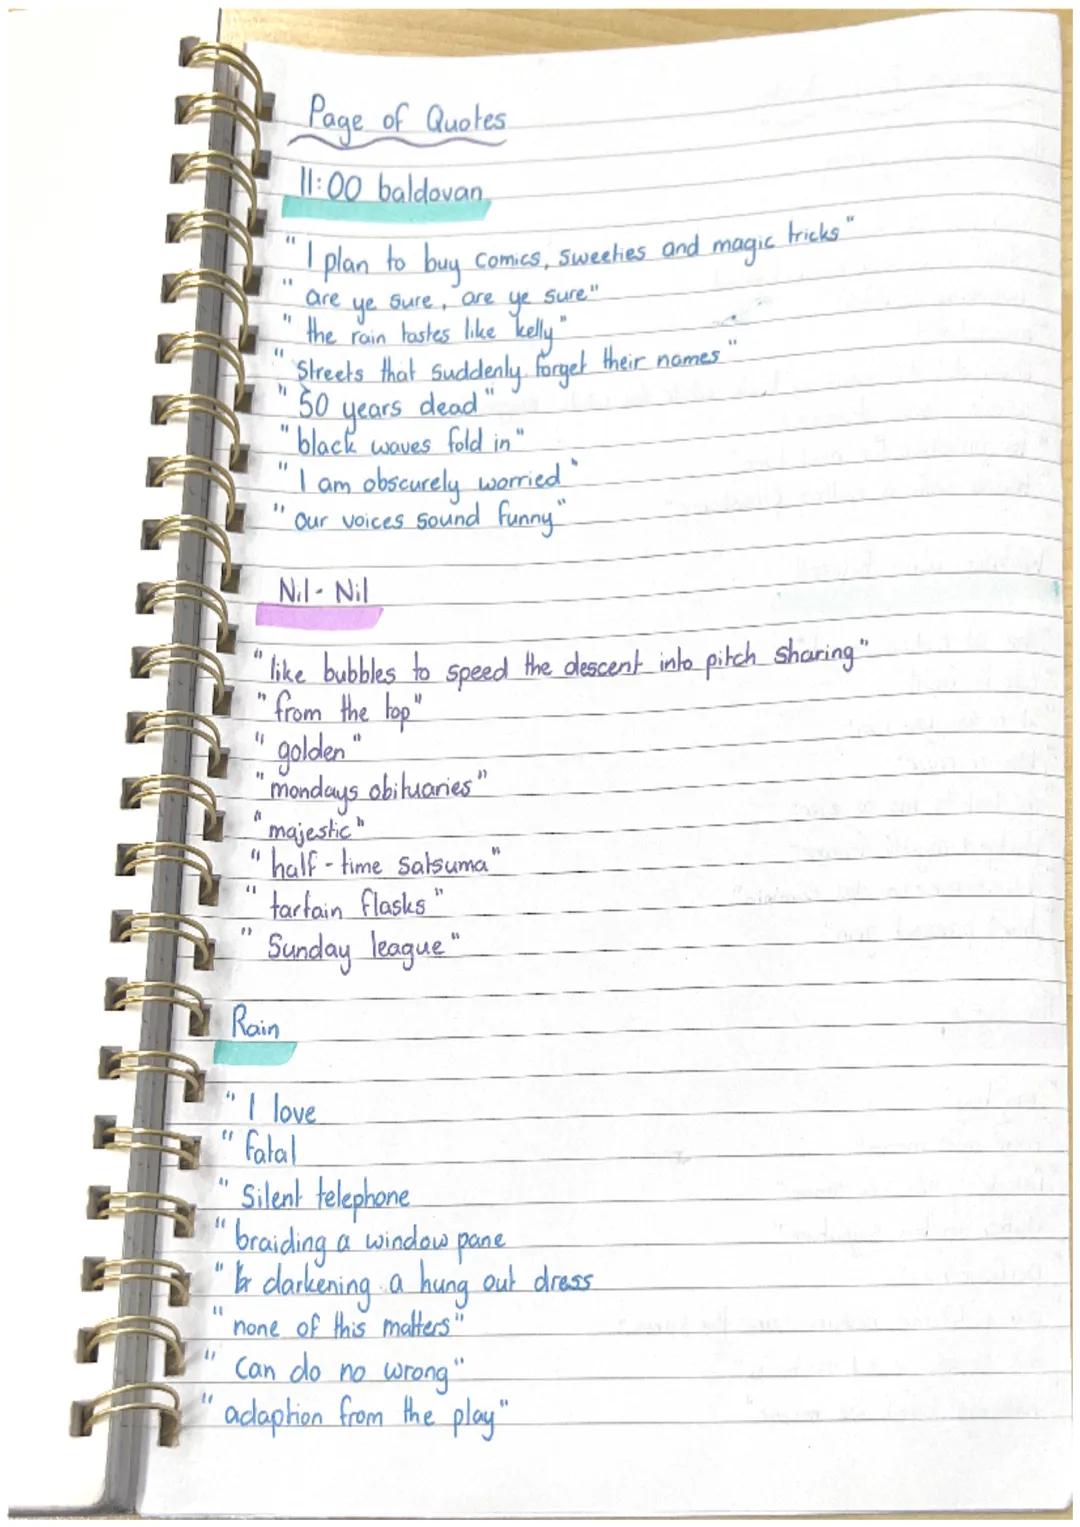 Page of Quotes
11:00 baldovan
"I plan to buy comics, sweeties and magic tricks"
"are ye sure, are ye sure"
"the rain tastes like kelly"
"Streets that suddenly forget their names"
"50 years dead"
"black waves fold in"
"I am obscurely worried"
"our voices sound funny"
Nil - Nil
"like bubbles to speed the descent into pitch sharing"
"from the top"
"golden"
"mondays obituaries"
"majestic"
"half-time satsuma"
"tartain flasks"
"Sunday league"
Rain
"I love
"fatal
"Silent telephone
"braiding a window pane
"darkening a hung out dress
"none of this matters"
"Can do no wrong"
"adaption from the play"